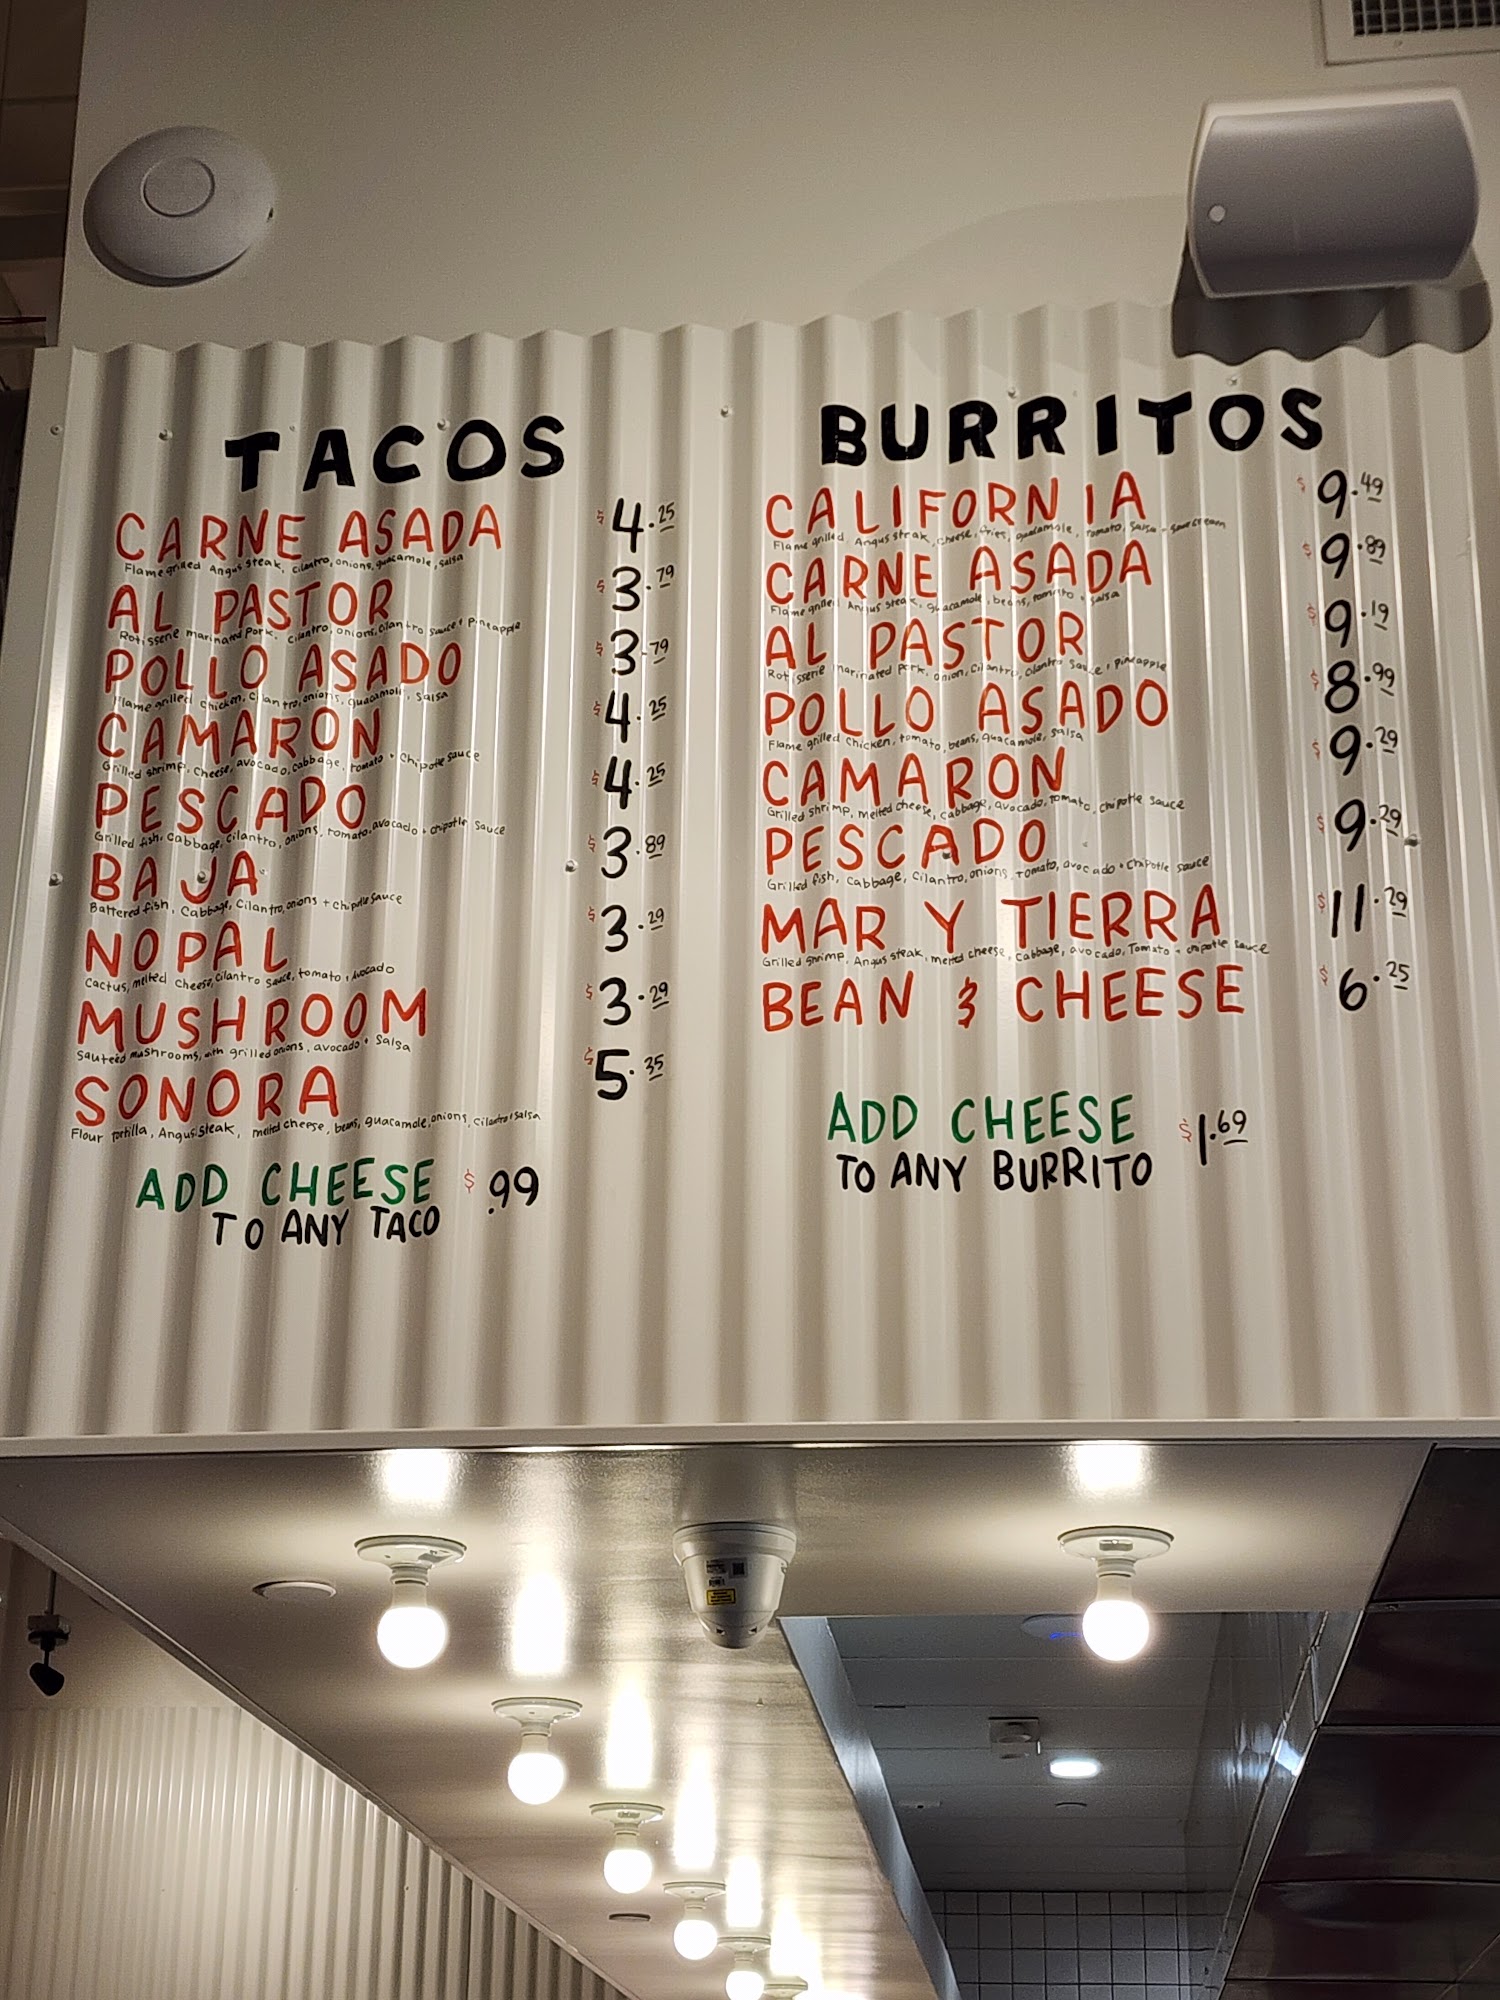 TACOS
CARNE ASADA $4.25
Flame grilled Angus steak, cilantro, onions, guacamole, salsa
AL PASTOR $3.79
Rotisserie marinated Pork, cilantro, onions, cilantro sauce + Pineapple
POLLO ASADO $3.79
Flame grilled chicken, cilantro, onions, guacamole, salsa
CAMARON $4.25
Grilled shrimp, cheese, avocado, cabbage, tomato + Chipotle sauce
PESCADO $4.25
Grilled fish, cabbage, cilantro, onions, tomato, avocado + chipotle sauce
BAJA $3.89
Battered fish, Cabbage, Cilantro, onions + chipotle sauce
NOPAL $3.29
Cactus, melted cheese, cilantro sauce, tomato + Avocado
MUSHROOM $3.29
Sauteed mushrooms, with grilled onions, avocado + salsa
SONORA $5.35
Flour tortilla, Angus steak, melted cheese, beans, guacamole, onions, cilantro + salsa
ADD CHEESE $.99
TO ANY TACO
BURRITOS
CALIFORNIA $9.49
Flame grilled Angus steak, cheese, fries, guacamole, tomato, salsa + sour cream
CARNE ASADA $9.89
Flame grilled Angus steak, guacamole, beans, tomato + salsa
AL PASTOR $9.19
Rotisserie marinated pork, onion, cilantro, cilantro sauce + pineapple
POLLO ASADO $8.99
Flame grilled chicken, tomato, beans, guacamole, salsa
CAMARON $9.29
Grilled shrimp, melted cheese, cabbage, avocado, tomato, chipotle sauce
PESCADO $9.29
Grilled fish, cabbage, cilantro, onions, tomato, avocado + chipotle sauce
MAR Y TIERRA $11.29
Grilled shrimp, Angus steak, melted cheese, cabbage, avocado, Tomato + chipotle sauce
BEAN & CHEESE $6.25
ADD CHEESE $1.69
TO ANY BURRITO